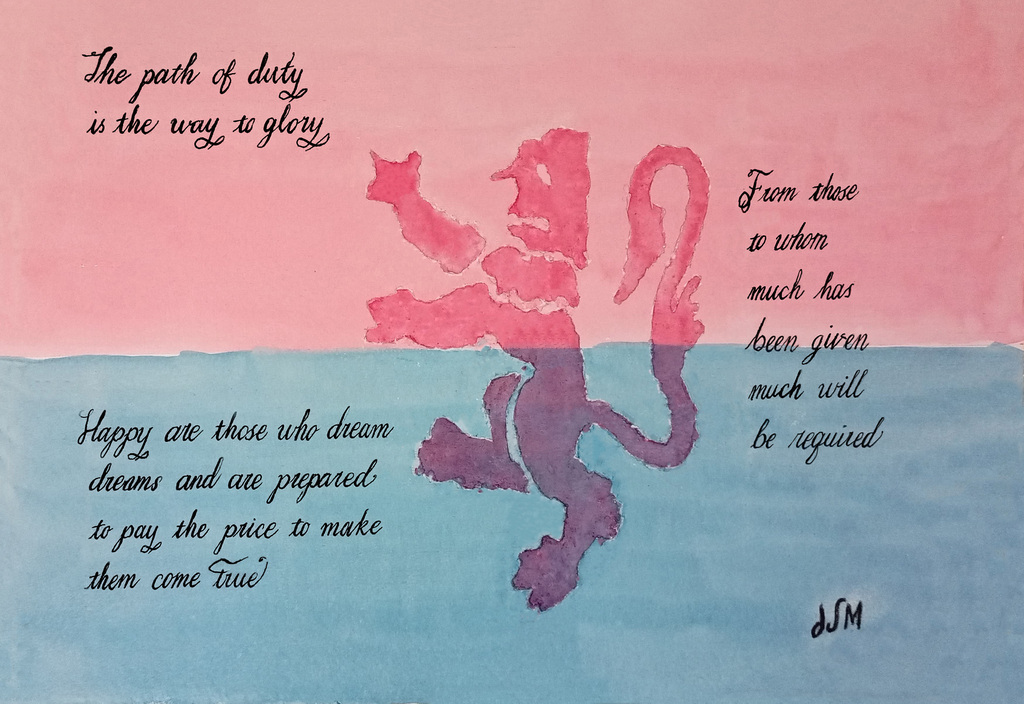 The path of duty
is the way to glory
From those
to whom
much has
been given
much will
be required
Happy are those who dream
dreams and are prepared
to pay the price to make
them come True
dSM